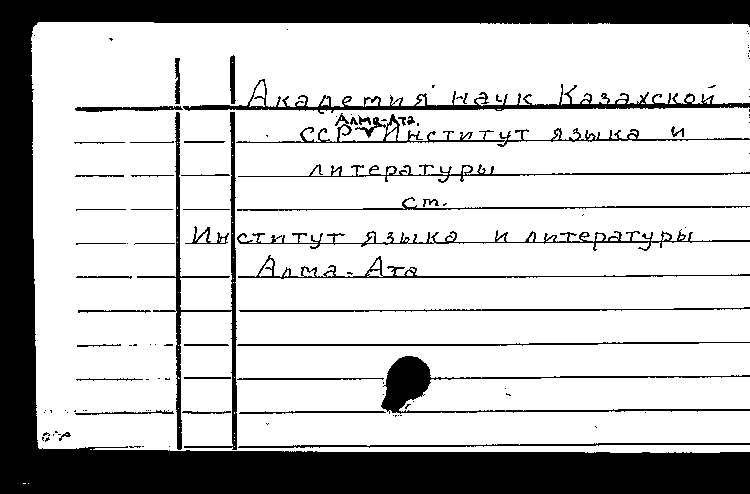 Академия наук Казахской
Алма-Ата.
ССР Институт языка и
литературы
ст.
Институт языка и литературы
Алма-Ата